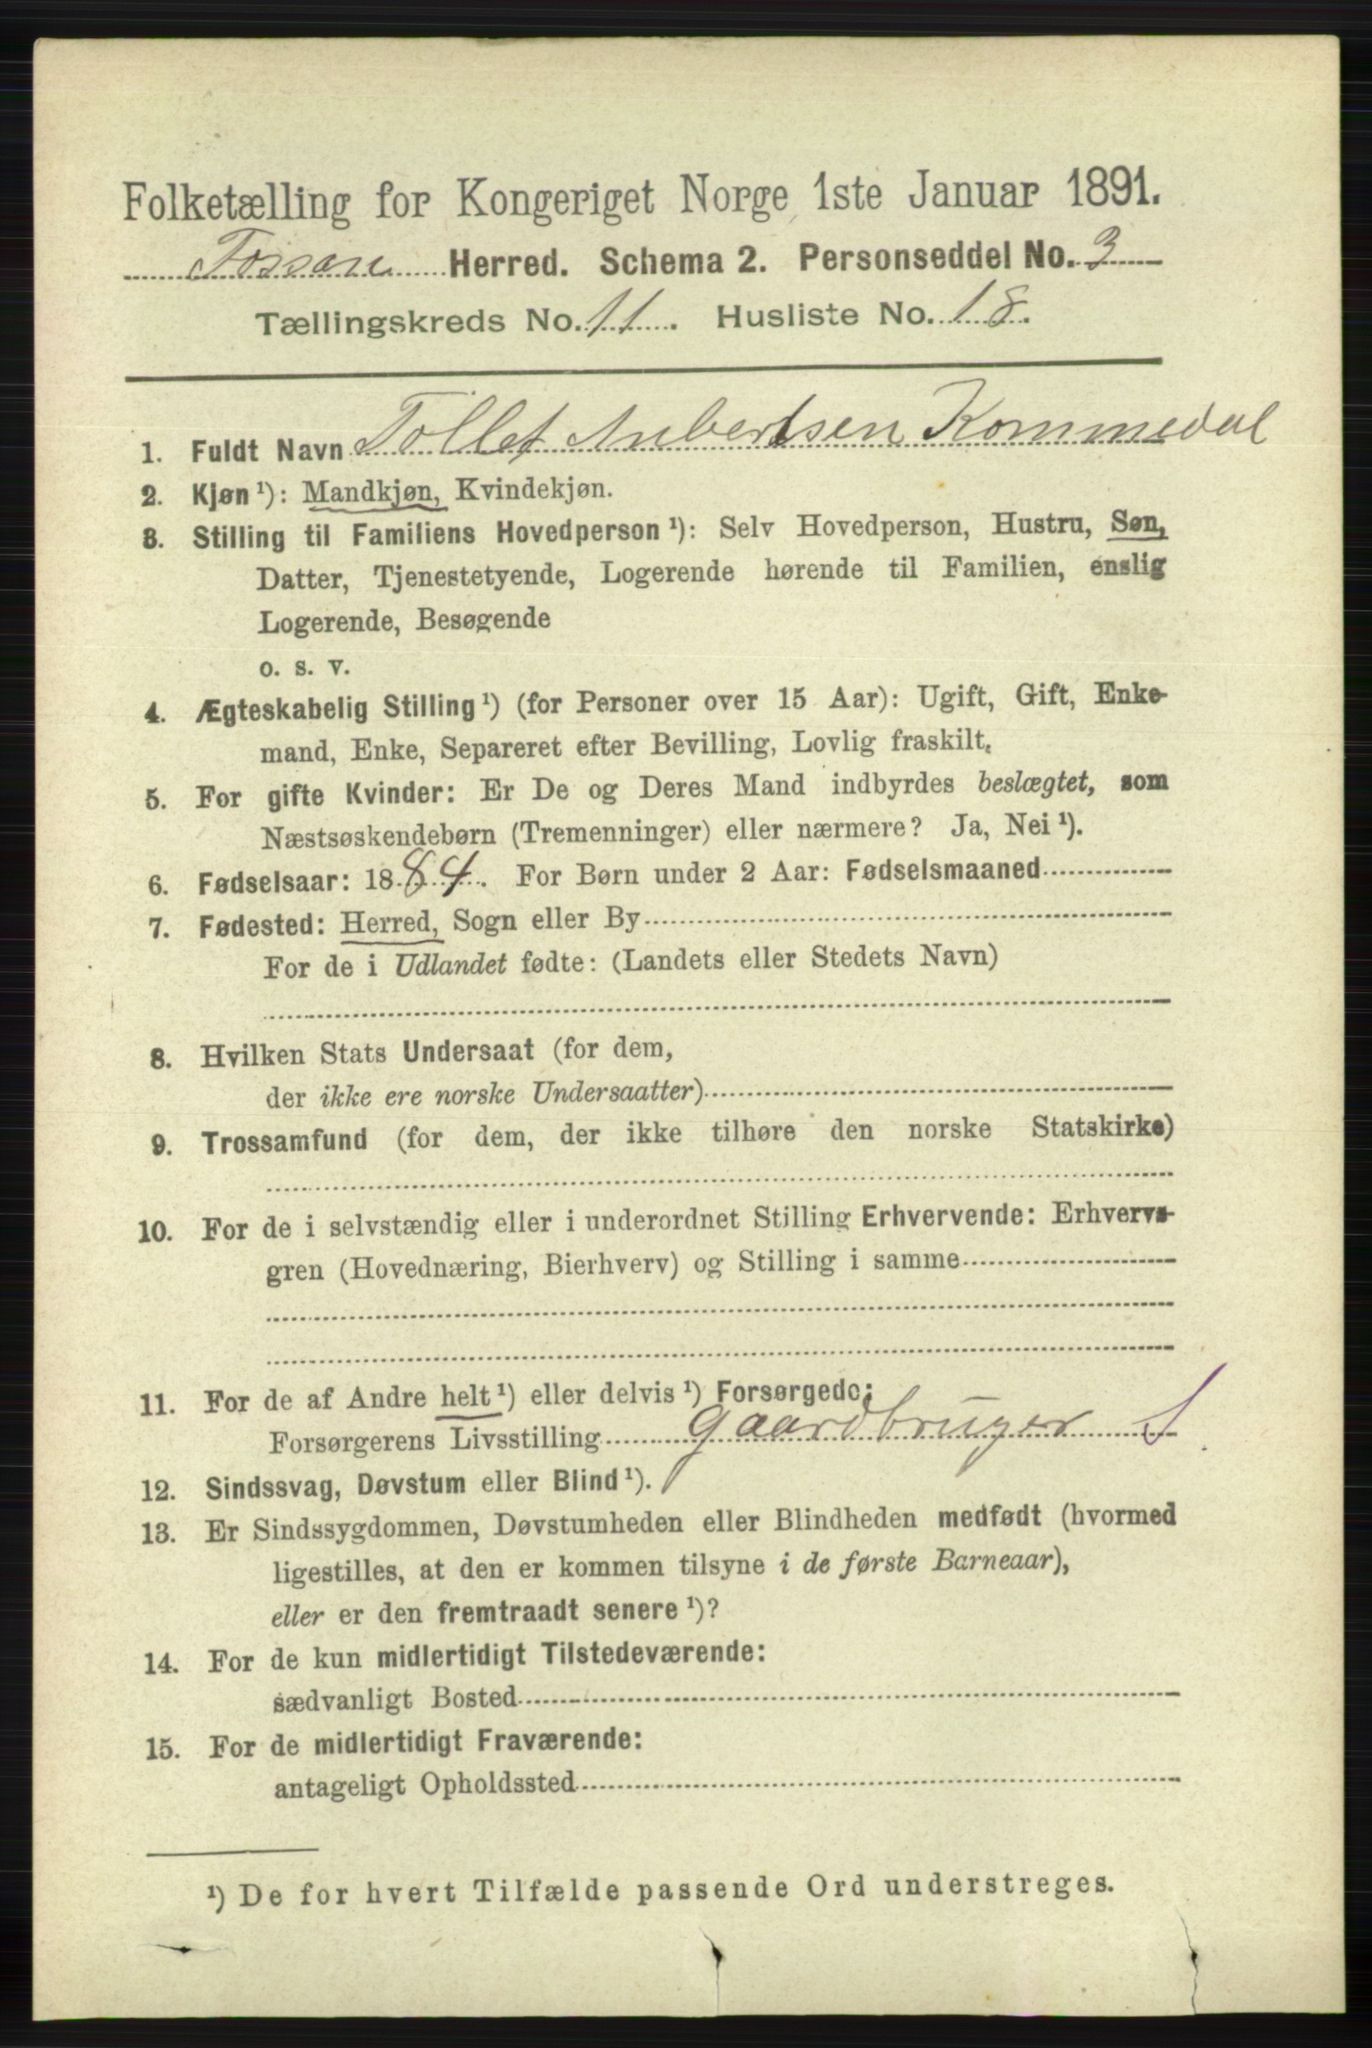 Folketælling for Kongeriget Norge 1ste Januar 1891.
Fossan Herred. Schema 2. Personseddel No. 3
Tællingskreds No. 11. Husliste No. 18.
1. Fuldt Navn Tollef Aubertsen Kommedal
2. Kjøn ¹): Mandkjøn, Kvindekjøn.
3. Stilling til Familiens Hovedperson ¹): Selv Hovedperson, Hustru, Søn,
Datter, Tjenestetyende, Logerende hørende til Familien, enslig
Logerende, Besøgende
o. s. v.
4. Ægteskabelig Stilling ¹) (for Personer over 15 Aar): Ugift, Gift, Enke-
mand, Enke, Separeret efter Bevilling, Lovlig fraskilt.
5. For gifte Kvinder: Er De og Deres Mand indbyrdes beslægtet, som
Næstsøskendebørn (Tremenninger) eller nærmere? Ja, Nei ¹).
6. Fødselsaar: 1884. For Børn under 2 Aar: Fødselsmaaned
7. Fødested: Herred, Sogn eller By
For de i Udlandet fødte: (Landets eller Stedets Navn)
8. Hvilken Stats Undersaat (for dem,
der ikke ere norske Undersaatter)
9. Trossamfund (for dem, der ikke tilhøre den norske Statskirke)
10. For de i selvstændig eller i underordnet Stilling Erhvervende: Erhvervs-
gren (Hovednæring, Bierhverv) og Stilling i samme
11. For de af Andre helt ¹) eller delvis ¹) Forsørgede:
Forsørgerens Livsstilling gaardbruger S
12. Sindssvag, Døvstum eller Blind ¹).
13. Er Sindssygdommen, Døvstumheden eller Blindheden medfødt (hvormed
ligestilles, at den er kommen tilsyne i de første Barneaar),
eller er den fremtraadt senere ¹)?
14. For de kun midlertidigt Tilstedeværende:
sædvanligt Bosted
15. For de midlertidigt Fraværende:
antageligt Opholdssted
¹) De for hvert Tilfælde passende Ord understreges.